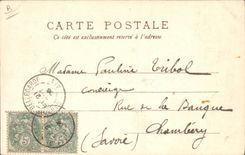 B
CARTE POSTALE
Ce côté est exclusivement réservé à l'adresse.
Madame Pauline Tribol
Concierge
Rue de la Banque
Chambéry
(Savoie)
5 5